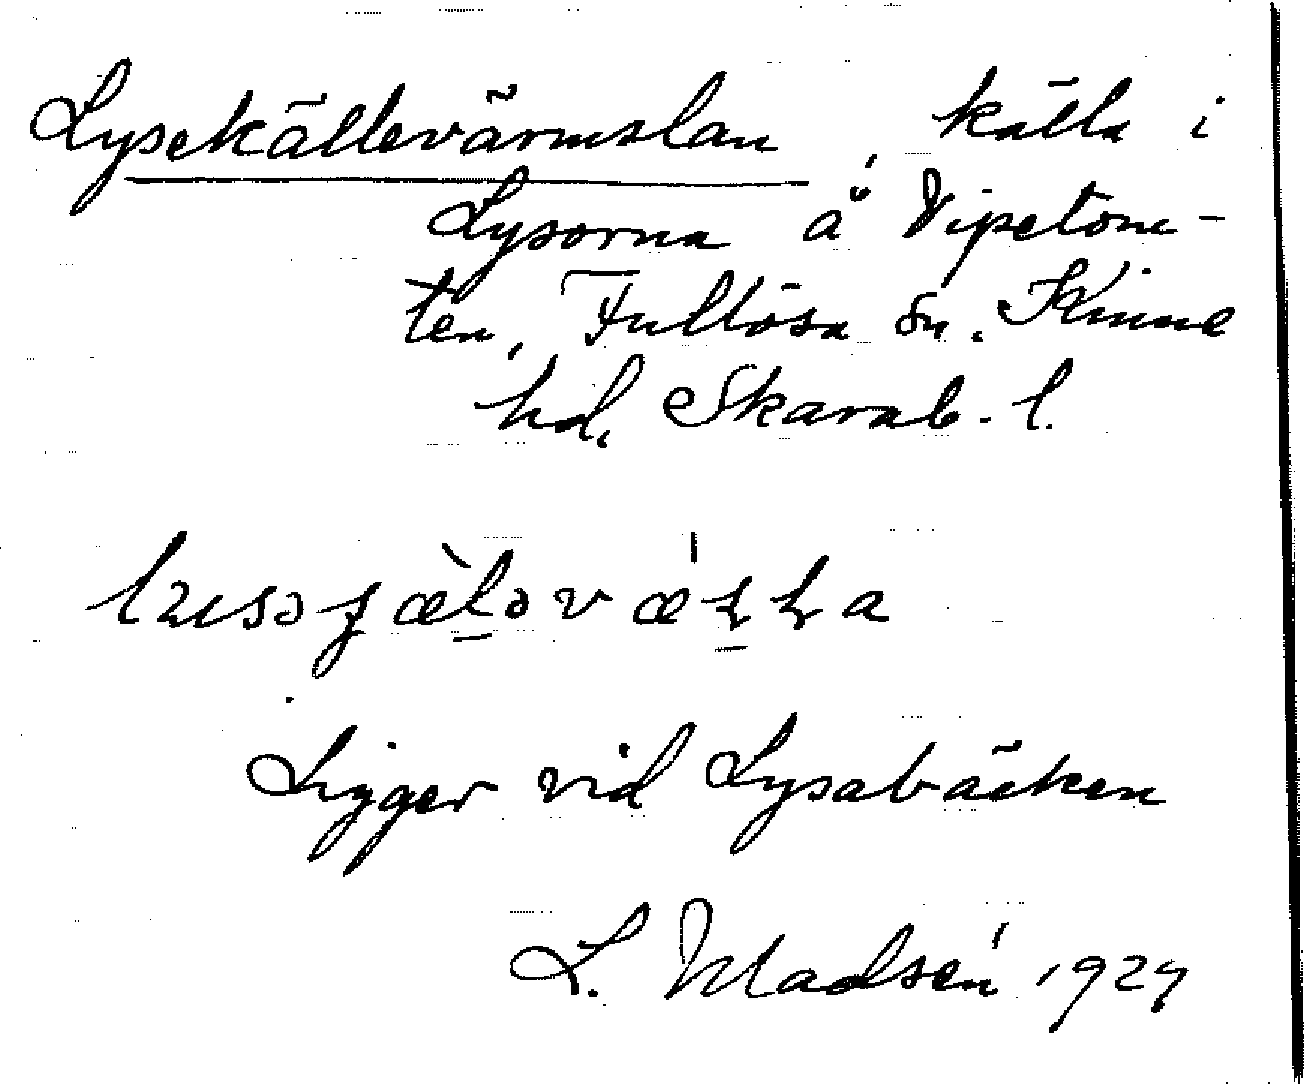 Lysekällevärmslan, källa i
Lysorna å Vipetom-
ten, Fullösa sn. Kinne
hd, Skarab. l.
Ligger vid Lysabäcken
L. Madsén 1927